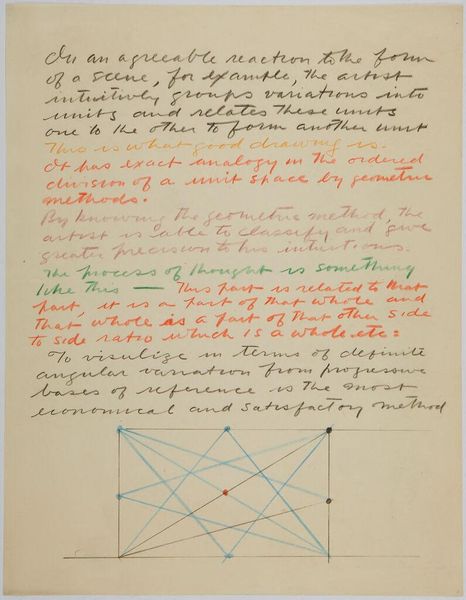 In an agreeable reaction to the form
of a scene, for example, the artist
intuitively groups variations into
units and relates these units
one to the other to form another unit
This is what good drawing is.
It has exact analogy in the ordered
division of a unit space by geometric
methods.
By knowing the geometric method, the
artist is able to classify and give
greater precision to his intuitions.
The process of thought is something
like this — This part is related to that
part, it is a part of that whole and
that whole is a part of that other side
to side ratio which is a whole. etc:
To visulize in terms of definite
angular variation from progressive
bases of reference is the most
economical and satisfactory method